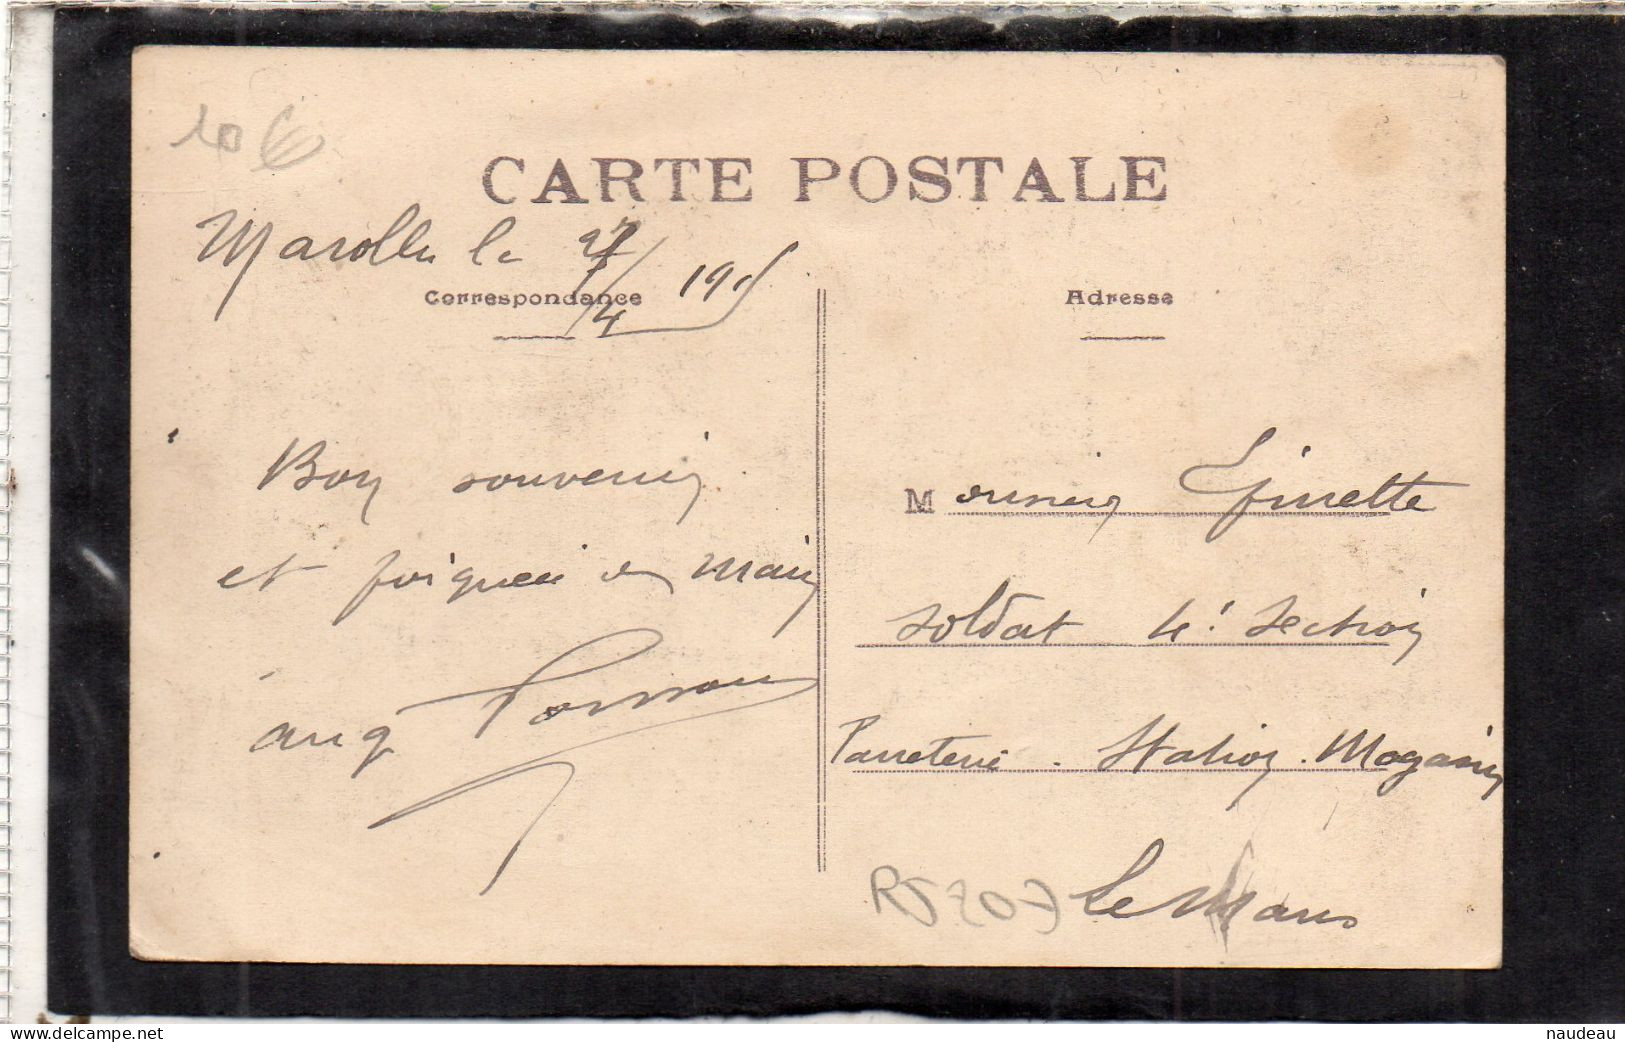 10 €
CARTE POSTALE
Marolles le 27/4 1915
Correspondance
Adresse
Bon souvenir
et poignée de Main
Aug
Monsieur Ginette
soldat 4e section
Parreterie . Station . Magasin
Le Mans
R5207
delcampe.net
naudeau